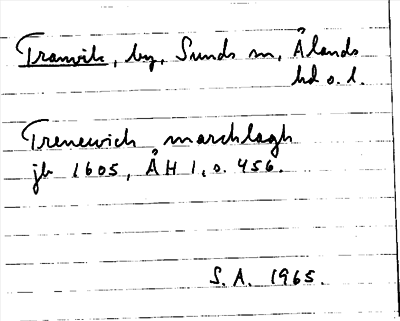 Tranvik, by, Sunds sn, Ålands
hd o. l.
Trenewich marchlagh
jb 1605, ÅH 1, s. 456.
S. A. 1965.